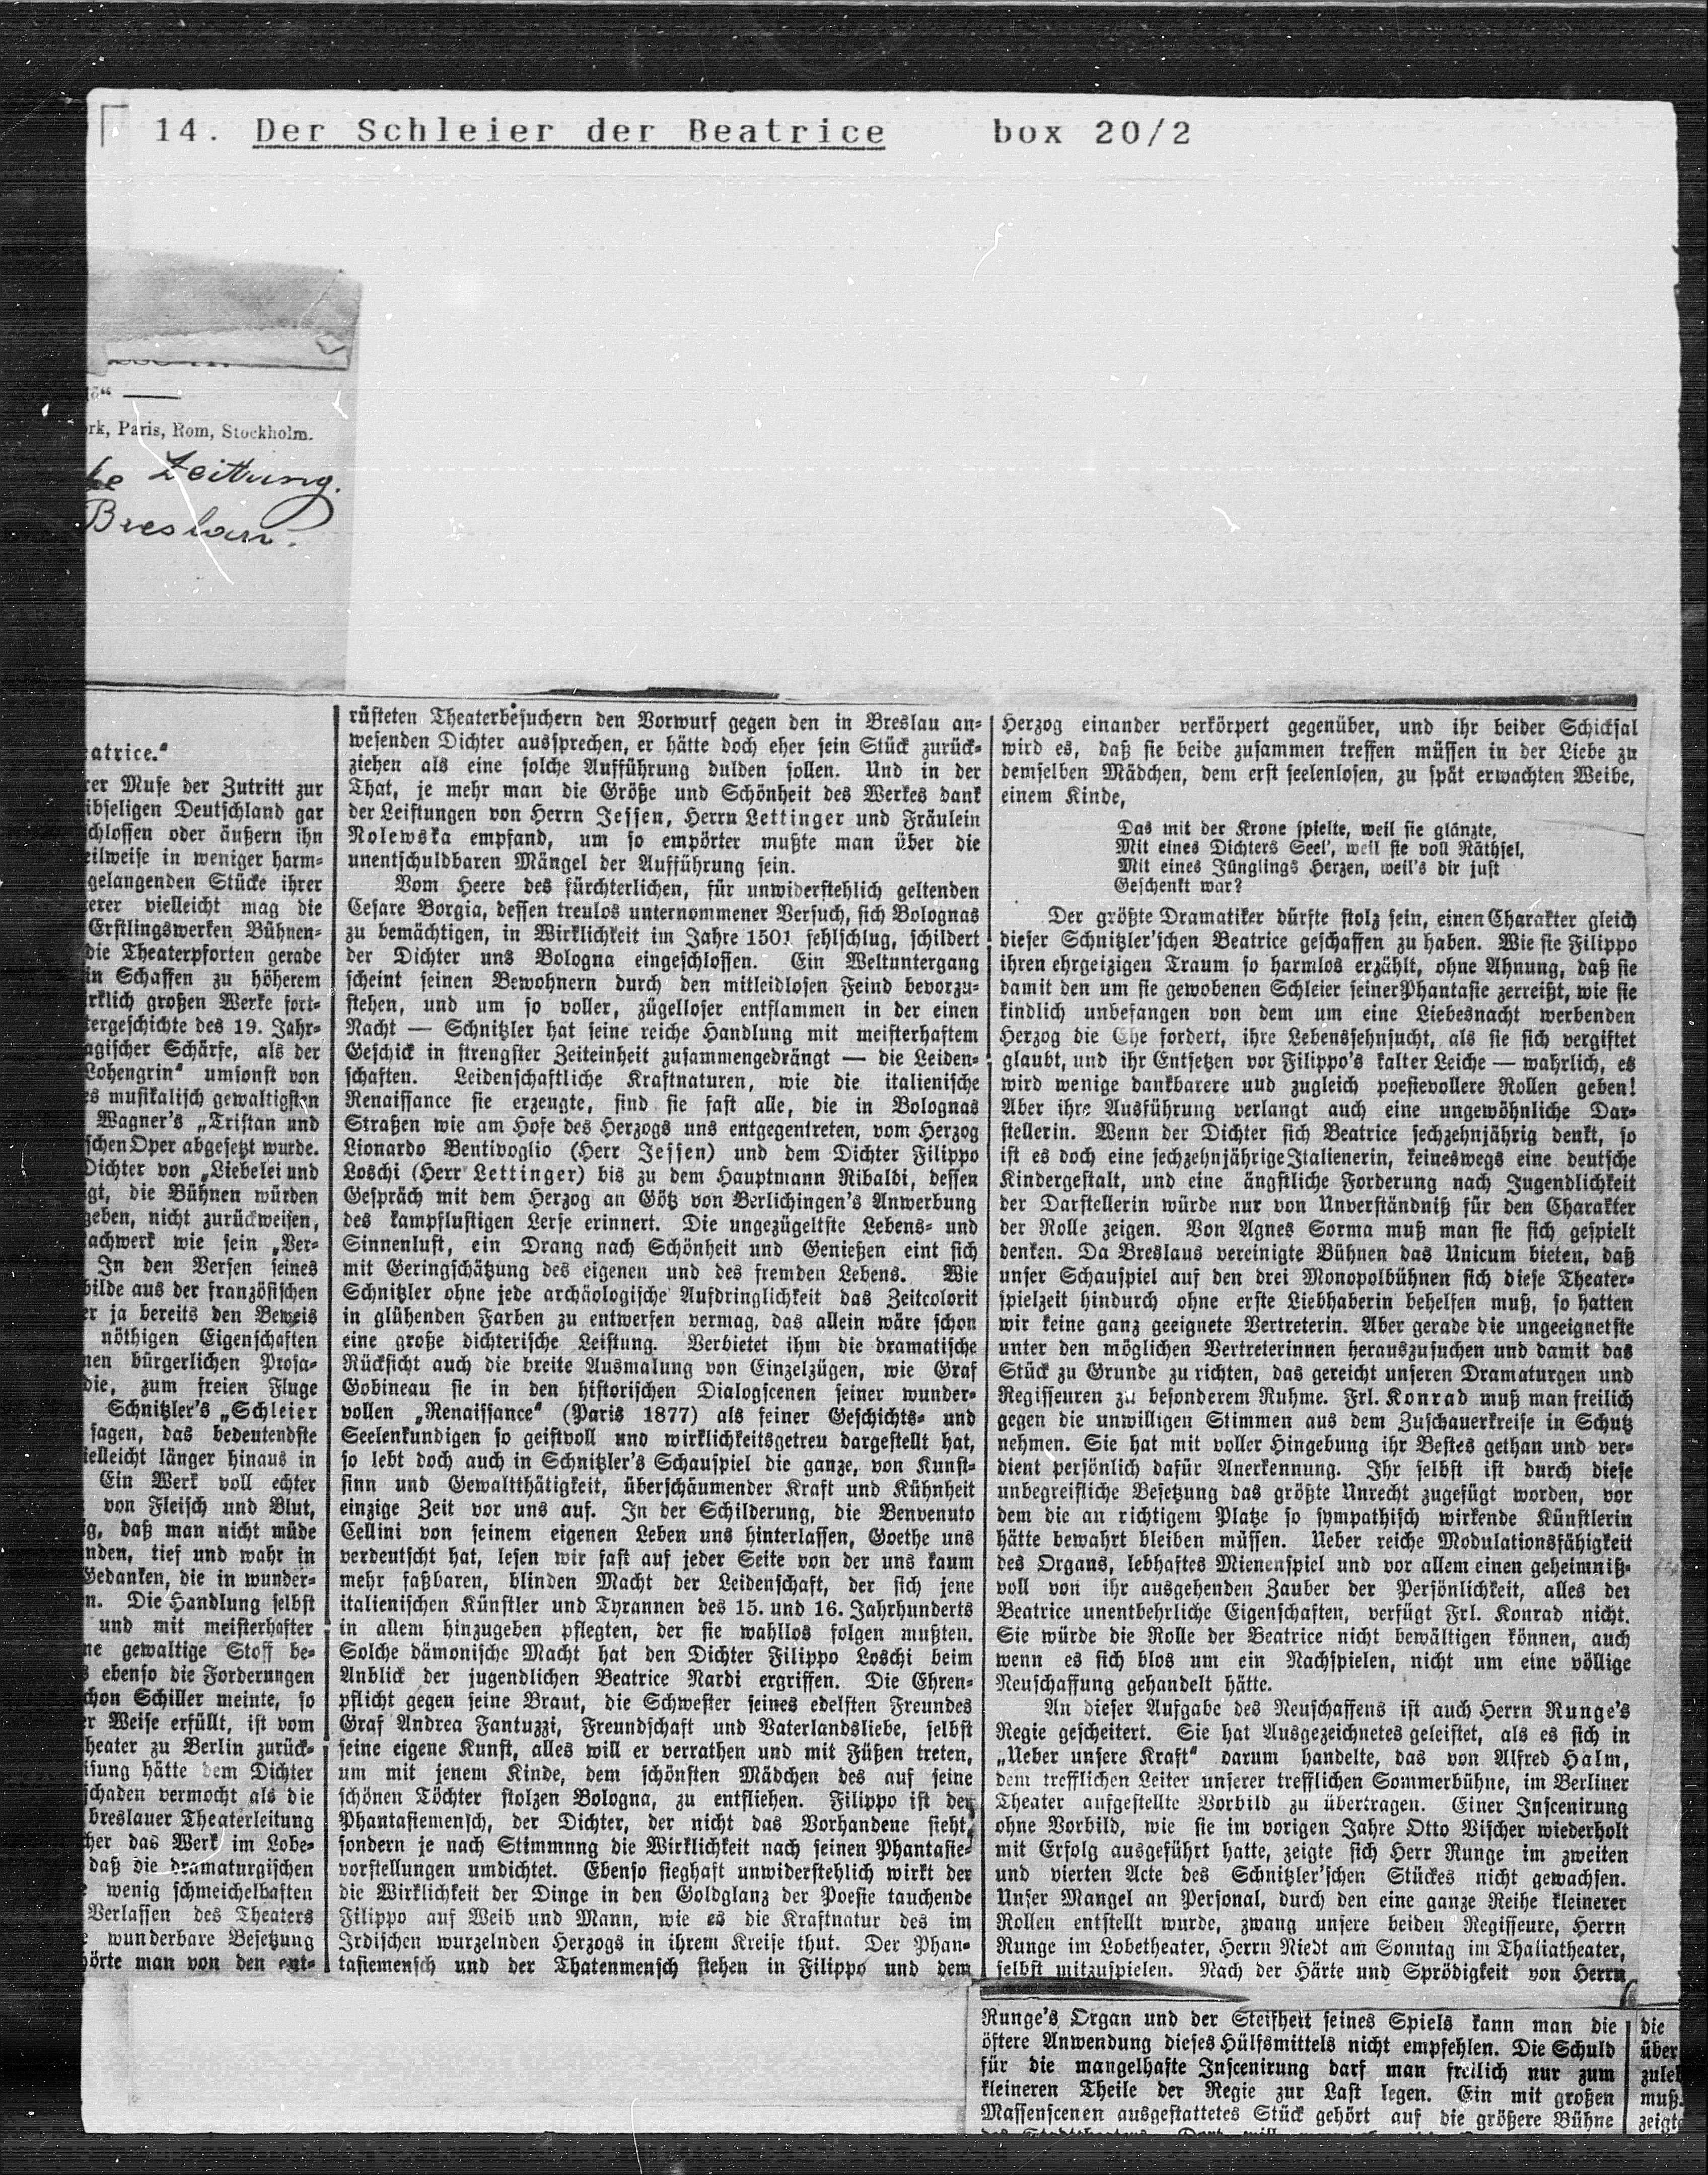 14. Der Schleier der Beatrice box 20/2
rk, Paris, Rom, Stockholm.
Zeitung.
Breslau.
eatrice."
rer Muse der Zutritt zur
ibseligen Deutschland gar
schlossen oder äußern ihn
eilweise in weniger harm-
gelangenden Stücke ihrer
terer vielleicht mag die
Erstlingswerken Bühnen-
die Theaterpforten gerade
in Schaffen zu höherem
irklich großen Werke fort-
tergeschichte des 19. Jahr-
agischer Schärfe, als der
Lohengrin" umsonst von
es musikalisch gewaltigsten
Wagner's „Tristan und
schen Oper abgesetzt wurde.
Dichter von „Liebelei und
igt, die Bühnen würden
geben, nicht zurückweisen,
Nachwerk wie sein „Ver-
In den Versen seines
bilde aus der französischen
er ja bereits den Beweis
nöthigen Eigenschaften
nen bürgerlichen Prosa-
die, zum freien Fluge
Schnitzler's „Schleier
sagen, das bedeutendste
ielleicht länger hinaus in
Ein Werk voll echter
von Fleisch und Blut,
ig, daß man nicht müde
nden, tief und wahr in
Gedanken, die in wunder-
n. Die Handlung selbst
und mit meisterhafter
ne gewaltige Stoff be-
s ebenso die Forderungen
schon Schiller meinte, so
er Weise erfüllt, ist vom
heater zu Berlin zurück-
isung hätte dem Dichter
schaden vermocht als die
breslauer Theaterleitung
cher das Werk im Lobe-
daß die dramaturgischen
wenig schmeichelhaften
Verlassen des Theaters
wunderbare Besetzung
hörte man von den ent-
rüsteten Theaterbesuchern den Vorwurf gegen den in Breslau an-
wesenden Dichter aussprechen, er hätte doch eher sein Stück zurück-
ziehen als eine solche Aufführung dulden sollen. Und in der
That, je mehr man die Größe und Schönheit des Werkes dank
der Leistungen von Herrn Jessen, Herrn Lettinger und Fräulein
Nolewska empfand, um so empörter mußte man über die
unentschuldbaren Mängel der Aufführung sein.
Vom Heere des fürchterlichen, für unwiderstehlich geltenden
Cesare Borgia, dessen treulos unternommener Versuch, sich Bolognas
zu bemächtigen, in Wirklichkeit im Jahre 1501 fehlschlug, schildert
der Dichter uns Bologna eingeschlossen. Ein Weltuntergang
scheint seinen Bewohnern durch den mitleidlosen Feind bevorzu-
stehen, und um so voller, zügelloser entflammen in der einen
Nacht — Schnitzler hat seine reiche Handlung mit meisterhaftem
Geschick in strengster Zeiteinheit zusammengedrängt — die Leiden-
schaften. Leidenschaftliche Kraftnaturen, wie die italienische
Renaissance sie erzeugte, sind sie fast alle, die in Bolognas
Straßen wie am Hofe des Herzogs uns entgegentreten, vom Herzog
Lionardo Bentivoglio (Herr Jessen) und dem Dichter Filippo
Loschi (Herr Lettinger) bis zu dem Hauptmann Ribaldi, dessen
Gespräch mit dem Herzog an Götz von Berlichingen's Anwerbung
des kampflustigen Lerse erinnert. Die ungezügeltste Lebens- und
Sinnenlust, ein Drang nach Schönheit und Genießen eint sich
mit Geringschätzung des eigenen und des fremden Lebens. Wie
Schnitzler ohne jede archäologische Aufdringlichkeit das Zeitcolorit
in glühenden Farben zu entwerfen vermag, das allein wäre schon
eine große dichterische Leistung. Verbietet ihm die dramatische
Rücksicht auch die breite Ausmalung von Einzelzügen, wie Graf
Gobineau sie in den historischen Dialogscenen seiner wunder-
vollen „Renaissance" (Paris 1877) als feiner Geschichts- und
Seelenkundigen so geistvoll und wirklichkeitsgetreu dargestellt hat,
so lebt doch auch in Schnitzler's Schauspiel die ganze, von Kunst-
sinn und Gewaltthätigkeit, überschäumender Kraft und Kühnheit
einzige Zeit vor uns auf. In der Schilderung, die Benvenuto
Cellini von seinem eigenen Leben uns hinterlassen, Goethe uns
verdeutscht hat, lesen wir fast auf jeder Seite von der uns kaum
mehr faßbaren, blinden Macht der Leidenschaft, der sich jene
italienischen Künstler und Tyrannen des 15. und 16. Jahrhunderts
in allem hinzugeben pflegten, der sie wahllos folgen mußten.
Solche dämonische Macht hat den Dichter Filippo Loschi beim
Anblick der jugendlichen Beatrice Nardi ergriffen. Die Ehren-
pflicht gegen seine Braut, die Schwester seines edelsten Freundes
Graf Andrea Fantuzzi, Freundschaft und Vaterlandsliebe, selbst
seine eigene Kunst, alles will er verrathen und mit Füßen treten,
um mit jenem Kinde, dem schönsten Mädchen des auf seine
schönen Töchter stolzen Bologna, zu entfliehen. Filippo ist der
Phantasiemensch, der Dichter, der nicht das Vorhandene sieht,
sondern je nach Stimmnng die Wirklichkeit nach seinen Phantasie-
vorstellungen umdichtet. Ebenso sieghaft unwiderstehlich wirkt der
die Wirklichkeit der Dinge in den Goldglanz der Poesie tauchende
Filippo auf Weib und Mann, wie es die Kraftnatur des im
Irdischen wurzelnden Herzogs in ihrem Kreise thut. Der Phan-
tasiemensch und der Thatenmensch stehen in Filippo und dem
Herzog einander verkörpert gegenüber, und ihr beider Schicksal
wird es, daß sie beide zusammen treffen müssen in der Liebe zu
demselben Mädchen, dem erst seelenlosen, zu spät erwachten Weibe,
einem Kinde,
Das mit der Krone spielte, weil sie glänzte,
Mit eines Dichters Seel', weil sie voll Räthsel,
Mit eines Jünglings Herzen, weil's dir just
Geschenkt war?
Der größte Dramatiker dürfte stolz sein, einen Charakter gleich
dieser Schnitzler'schen Beatrice geschaffen zu haben. Wie sie Filippo
ihren ehrgeizigen Traum so harmlos erzählt, ohne Ahnung, daß sie
damit den um sie gewobenen Schleier seiner Phantasie zerreißt, wie sie
kindlich unbefangen von dem um eine Liebesnacht werbenden
Herzog die Ehe fordert, ihre Lebenssehnsucht, als sie sich vergiftet
glaubt, und ihr Entsetzen vor Filippo's kalter Leiche — wahrlich, es
wird wenige dankbarere und zugleich poesievollere Rollen geben!
Aber ihre Ausführung verlangt auch eine ungewöhnliche Dar-
stellerin. Wenn der Dichter sich Beatrice sechzehnjährig denkt, so
ist es doch eine sechzehnjährige Italienerin, keineswegs eine deutsche
Kindergestalt, und eine ängstliche Forderung nach Jugendlichkeit
der Darstellerin würde nur von Unverständniß für den Charakter
der Rolle zeigen. Von Agnes Sorma muß man sie sich gespielt
denken. Da Breslaus vereinigte Bühnen das Unicum bieten, daß
unser Schauspiel auf den drei Monopolbühnen sich diese Theater-
spielzeit hindurch ohne erste Liebhaberin behelfen muß, so hatten
wir keine ganz geeignete Vertreterin. Aber gerade die ungeeignetste
unter den möglichen Vertreterinnen herauszusuchen und damit das
Stück zu Grunde zu richten, das gereicht unseren Dramaturgen und
Regisseuren zu besonderem Ruhme. Frl. Konrad muß man freilich
gegen die unwilligen Stimmen aus dem Zuschauerkreise in Schutz
nehmen. Sie hat mit voller Hingebung ihr Bestes gethan und ver-
dient persönlich dafür Anerkennung. Ihr selbst ist durch diese
unbegreifliche Besetzung das größte Unrecht zugefügt worden, vor
dem die an richtigem Platze so sympathisch wirkende Künstlerin
hätte bewahrt bleiben müssen. Ueber reiche Modulationsfähigkeit
des Organs, lebhaftes Mienenspiel und vor allem einen geheimniß-
voll von ihr ausgehenden Zauber der Persönlichkeit, alles der
Beatrice unentbehrliche Eigenschaften, verfügt Frl. Konrad nicht.
Sie würde die Rolle der Beatrice nicht bewältigen können, auch
wenn es sich blos um ein Nachspielen, nicht um eine völlige
Neuschaffung gehandelt hätte.
An dieser Aufgabe des Neuschaffens ist auch Herrn Runge's
Regie gescheitert. Sie hat Ausgezeichnetes geleistet, als es sich in
„Ueber unsere Kraft" darum handelte, das von Alfred Halm,
dem trefflichen Leiter unserer trefflichen Sommerbühne, im Berliner
Theater aufgestellte Vorbild zu übertragen. Einer Inscenirung
ohne Vorbild, wie sie im vorigen Jahre Otto Vischer wiederholt
mit Erfolg ausgeführt hatte, zeigte sich Herr Runge im zweiten
und vierten Acte des Schnitzler'schen Stückes nicht gewachsen.
Unser Mangel an Personal, durch den eine ganze Reihe kleinerer
Rollen entstellt wurde, zwang unsere beiden Regisseure, Herrn
Runge im Lobetheater, Herrn Niedt am Sonntag im Thaliatheater,
selbst mitzuspielen. Nach der Härte und Sprödigkeit von Herrn
Runge's Organ und der Steifheit seines Spiels kann man die
öftere Anwendung dieses Hülfsmittels nicht empfehlen. Die Schuld
für die mangelhafte Inscenirung darf man freilich nur zum
kleineren Theile der Regie zur Last legen. Ein mit großen
Massenscenen ausgestattetes Stück gehört auf die größere Bühne
die
über
zule
muß.
zeigte